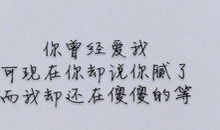 你曾经爱我
可现在你却说你腻了
而我却还在傻傻的等